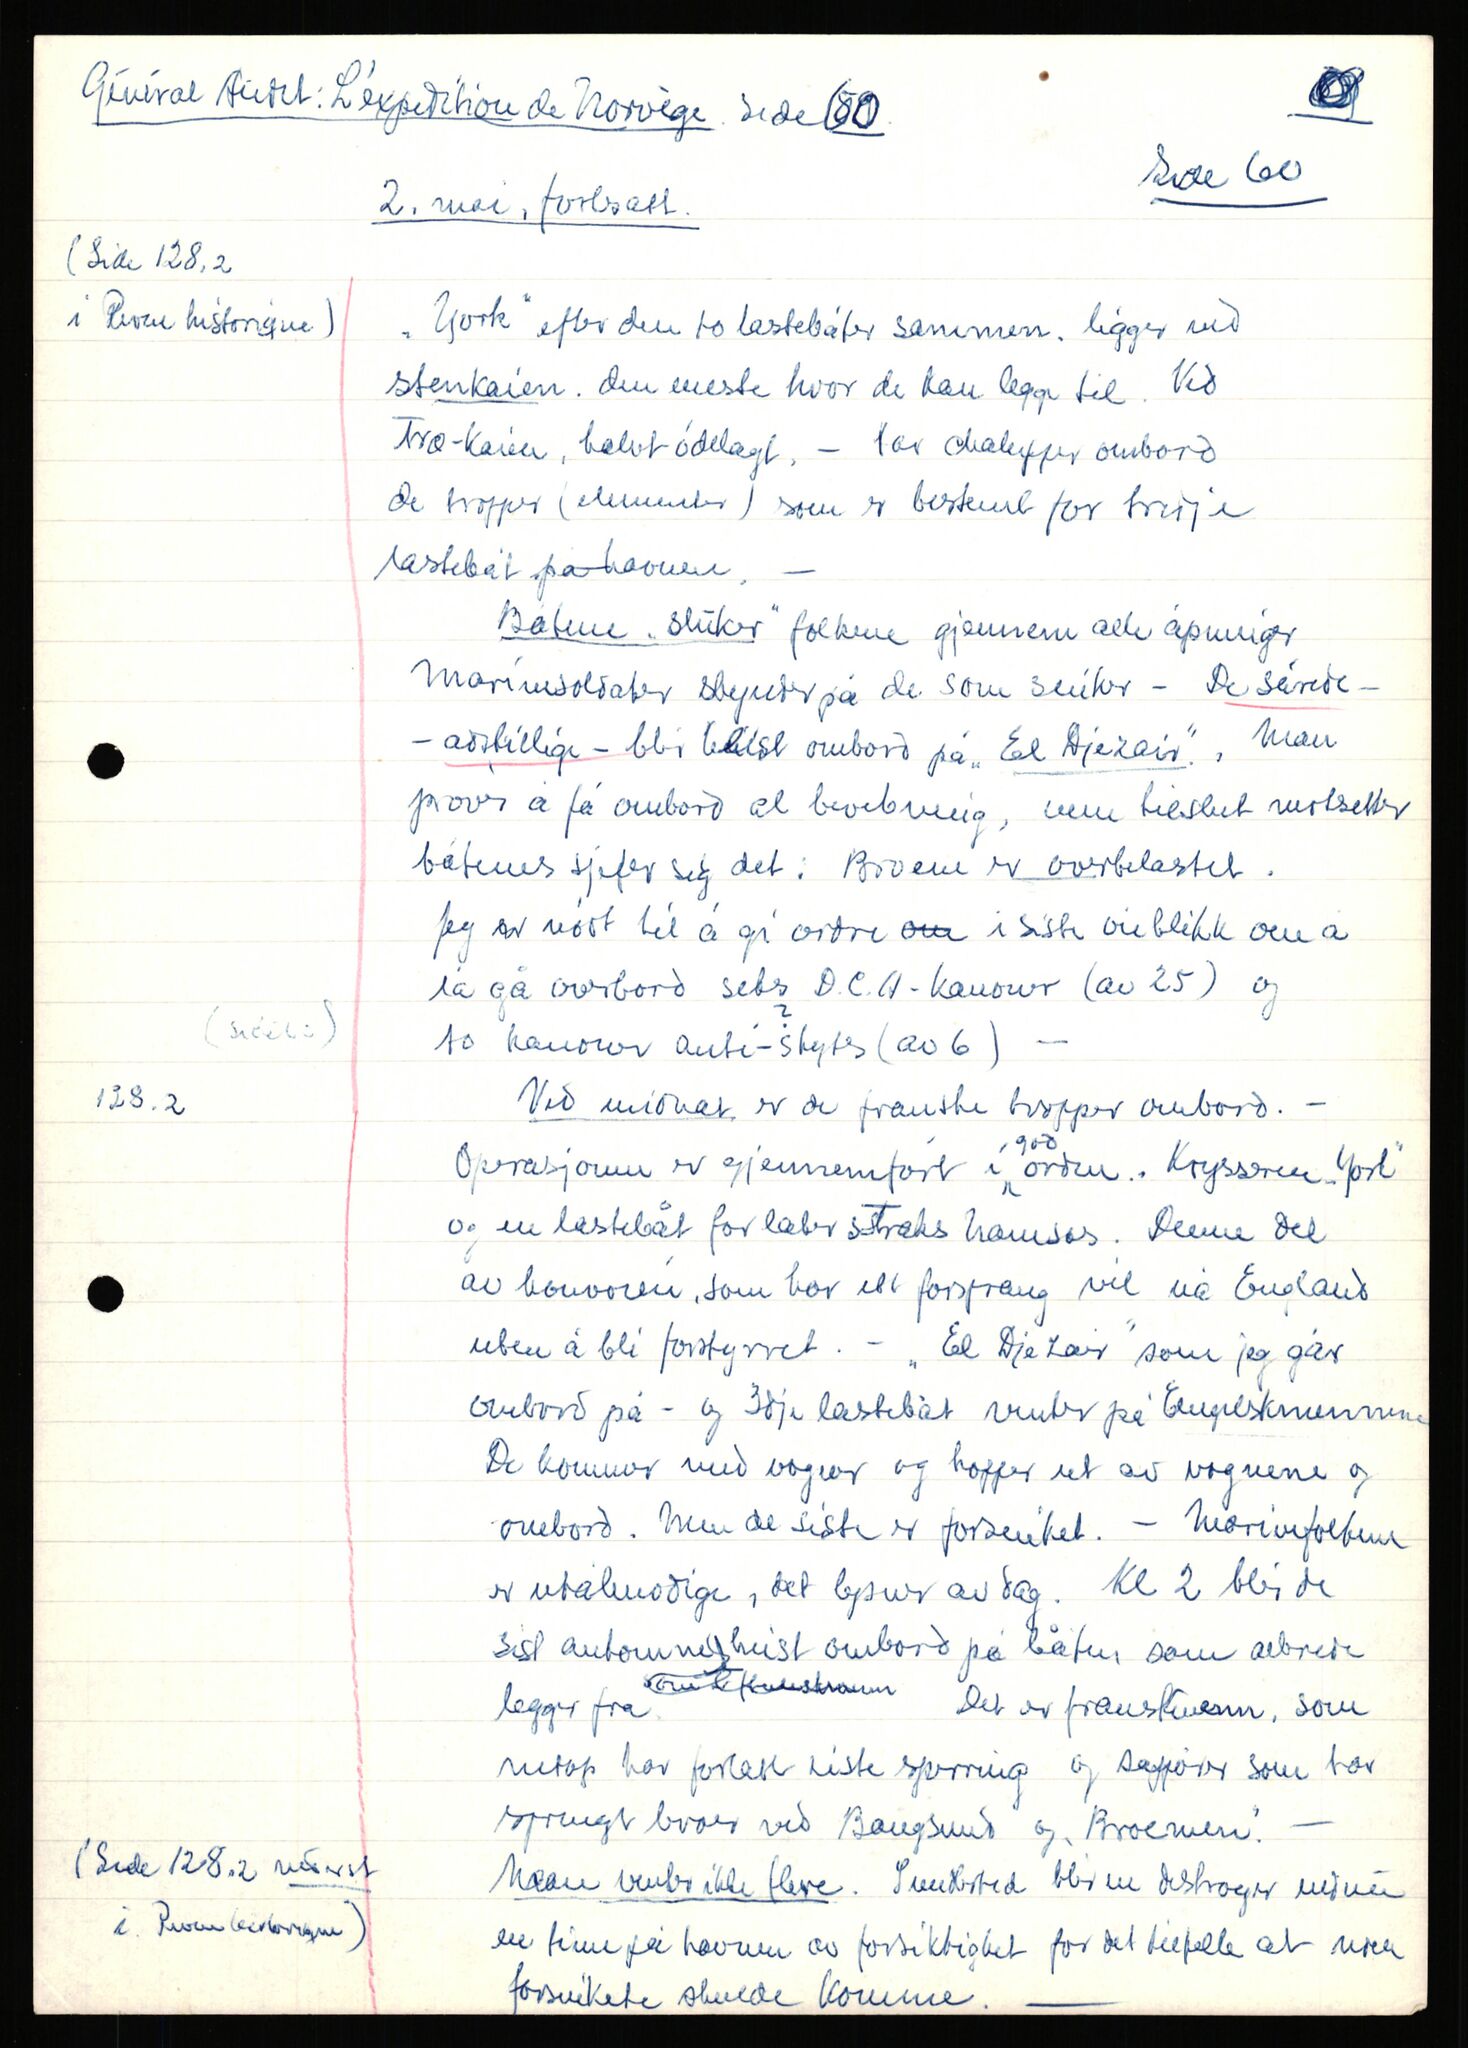 Général Audet: L'éxpedition de Norvège. Side 60.
Side 60
2. mai, fortsatt.
(Side 128,2
i Revue historique)
„York" efter den to lastebåter sammen. ligger ved
stenkaien. den eneste hvor de kan legge til. Ved
Træ-kaien, halvt ödelagt, – tar ombord
de tropper (elementer) som er bestemt for tredje
lastebåt på havnen. –
Båtene „sluker" folkene gjennem alle åpninger
Marinesoldater skynder på de som senker – De sårede –
– adskillige – blir heist ombord på „El Djezair". Man
prøver å få ombord al bevebning, men tilslut motsetter
båtenes sjefer sig det: Broene er overbelastet.
Jeg er nödt til å gi ordre om i siste öieblikk om å
la gå overbord seks D.C.A-kanoner (av 25) og
to kanoner anti-skyts (av 6) –
?
128.2
Ved midnat er de franske tropper ombord. –
Operasjonen er gjennemfört i god orden. Krysseren „York"
og en lastebåt forlater straks Namsos. Denne del
av konvoien, som har ett forsprang vil nå England
uten å bli forstyrret. – „El Djezair" som jeg går
ombord på – og 3dje lastebåt venter på Engelskmennene
De kommer med vogner og hopper ut av vognene og
ombord. Men de siste er forsenket. – Marinefolkene
er utålmodige, det lysner av dag. Kl 2 blir de
sist ankomne heist ombord på båten som allerede
legger fra. Det er franskmenn, som
netop har forlatt siste sperring og sapører som har
sprengt broer ved Bangsund og „Broemen". –
(Side 128.2 nederst
i Revue historique)
Man venter ikke flere. Imidlertid blir en destroyer ennu
en time på havnen av forsiktighet for det tilfelle at noen
forsinkete skulde komme. –